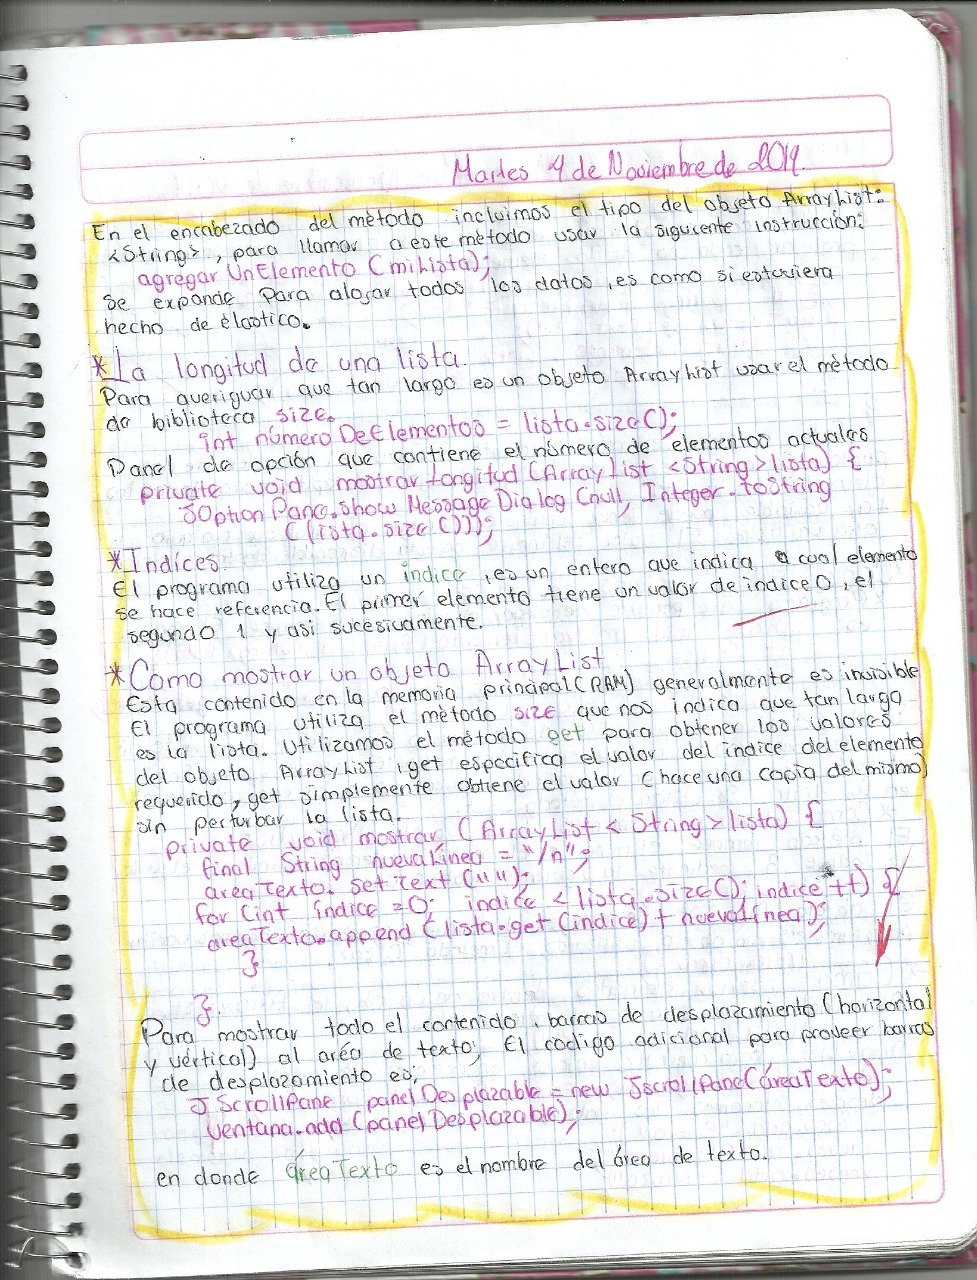 Martes 4 de Noviembre de 2014.
En el encabezado del mètodo incluimos el tipo del objeto ArrayList:
<String>, para llamar a este mètodo usar la siguiente instrucción:
agregarUnElemento (miLista);
Se expande para alojar todos los datos, es como si estuviera
hecho de èlastico.
*La longitud de una lista.
Para averiguar que tan largo es un objeto ArrayList usar el mètodo
de biblioteca size.
int númeroDeElementos = lista.size();
Panel de opción que contiene el número de elementos actuales
private void mostrarLongitud (ArrayList <String> lista) {
JOptionPane.showMessageDialog (null, Integer.toString
(lista.size()));
*Indíces.
El programa utiliza un índice, es un entero que indica a cual elemento
se hace referencia. El primer elemento tiene un valor de indice 0, el
segundo 1 y asi sucesivamente.
*Como mostrar un objeto ArrayList
Esta contenido en la memoria principal (RAM) generalmente es invisible
El programa utiliza el mètodo size que nos indica que tan larga
es la lista. Utilizamos el método get para obtener los valores
del objeto ArrayList, get especifica el valor del indice del elemento
requerido, get simplemente obtiene el valor (hace una copia del mismo)
sin perturbar la lista.
private void mostrar (ArrayList < String > lista) {
final String nuevaLínea = "/n";
areaTexto. setText ("");
for (int índice =0; indice < lista.size(); indice ++) {
areaTexto.append (lista.get (indice) + nuevaLínea);
}
}.
Para mostrar todo el contenido, barras de desplazamiento (horizontal
y vértical) al aréa de texto; El codigo adicional para proveer barras
de desplazamiento es;
JScrollPane panelDesplazable = new JscrollPane(áreaTexto);
ventana.add (panelDesplazable);
en donde áreaTexto es el nombre del área de texto.